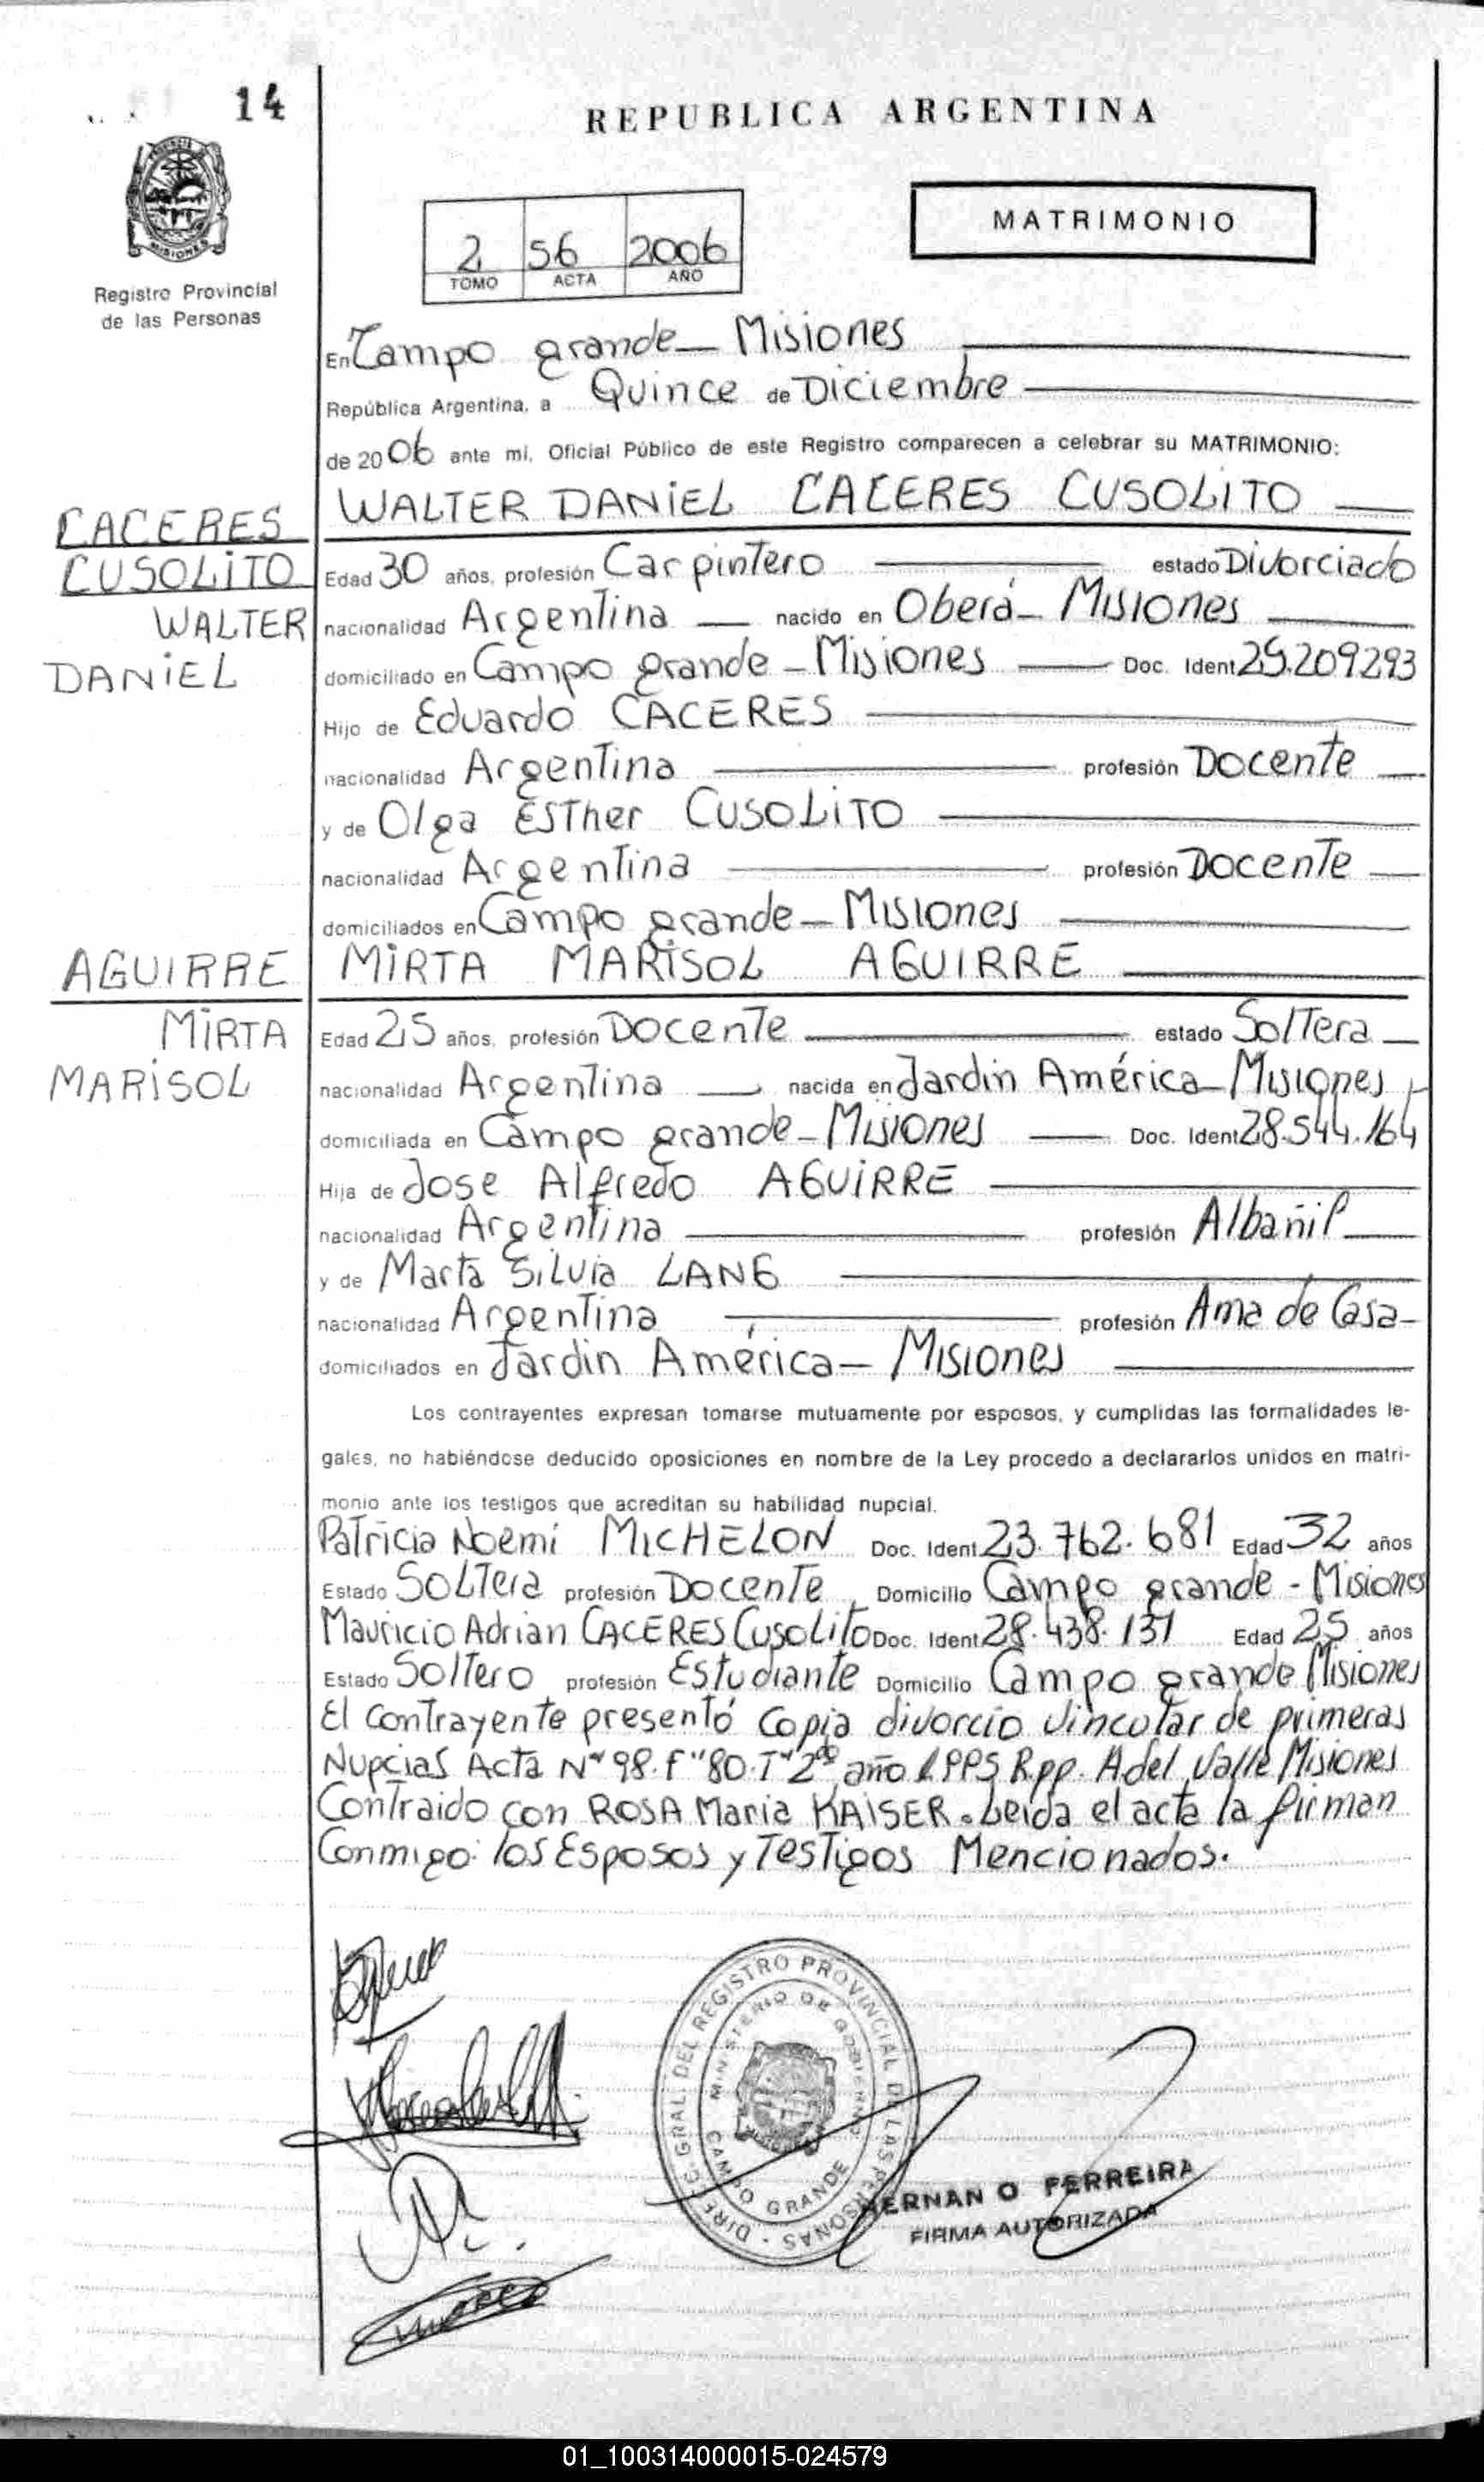 14
REPUBLICA ARGENTINA
MATRIMONIO
2 56 2006
TOMO ACTA AÑO
MISIONES
Registro Provincial
de las Personas
En Campo grande - Misiones
República Argentina, a Quince de Diciembre
de 2006 ante mi, Oficial Público de este Registro comparecen a celebrar su MATRIMONIO:
CACERES
CUSOLITO
WALTER
DANIEL
WALTER DANIEL CACERES CUSOLITO
Edad 30 años, profesión Carpintero estado Divorciado
nacionalidad Argentina nacido en Oberá - Misiones
domiciliado en Campo grande - Misiones Doc. Ident 25.209.293
Hijo de Eduardo CACERES
nacionalidad Argentina profesión Docente
y de Olga Esther CUSOLITO
nacionalidad Argentina profesión Docente
domiciliados en Campo grande - Misiones
AGUIRRE
MIRTA
MARISOL
MIRTA MARISOL AGUIRRE
Edad 25 años, profesión Docente estado Soltera
nacionalidad Argentina nacida en Jardin América - Misiones
domiciliada en Campo grande - Misiones Doc. Ident 28.544.164
Hija de Jose Alfredo AGUIRRE
nacionalidad Argentina profesión Albañil
y de Marta Silvia LANG
nacionalidad Argentina profesión Ama de Casa -
domiciliados en Jardin América - Misiones
Los contrayentes expresan tomarse mutuamente por esposos, y cumplidas las formalidades le-
gales, no habiéndose deducido oposiciones en nombre de la Ley procedo a declararlos unidos en matri-
monio ante los testigos que acreditan su habilidad nupcial.
Patricia Noemi MICHELON Doc. Ident 23.762.681 Edad 32 años
Estado Soltera profesión Docente Domicilio Campo grande - Misiones
Mauricio Adrian CACERES Cusolito Doc. Ident 28.438.131 Edad 25 años
Estado Soltero profesión Estudiante Domicilio Campo grande Misiones
El contrayente presentó copia divorcio vincular de primeras
Nupcias Acta Nº 98. Fº 80. Tº 2º año 1995 R.pp. A del Valle Misiones
Contraido con ROSA Maria KAISER. Leida el acta la firman
Conmigo: los Esposos y Testigos Mencionados.
DIREC. GRAL. DEL REGISTRO PROVINCIAL DE LAS PERSONAS
MINISTERIO DE GOBIERNO
CAMPO GRANDE
HERNAN O FERREIRA
FIRMA AUTORIZADA
01_100314000015-024579